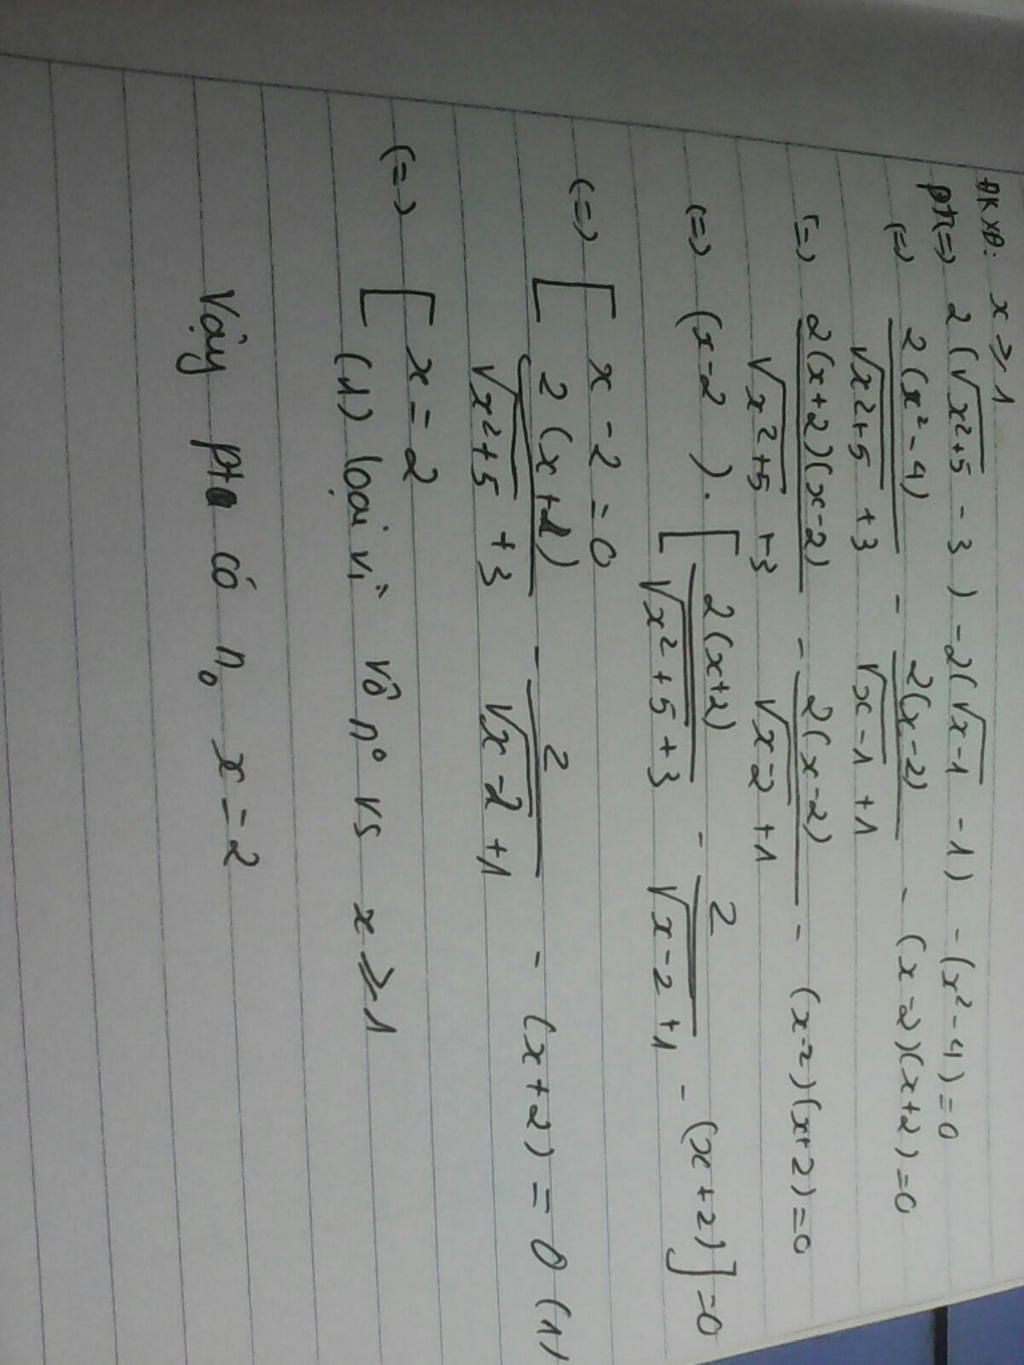 ĐKXĐ: x ≥ 1
pt(=) 2(√(x²+5) - 3) - 2(√(x-1) - 1) - (x² - 4) = 0
(=) 2(x² - 4)/(√(x²+5) + 3) - 2(x-2)/(√(x-1) + 1) - (x-2)(x+2) = 0
(=) 2(x+2)(x-2)/(√(x²+5) + 3) - 2(x-2)/(√(x-2) + 1) - (x-2)(x+2) = 0
(=) (x-2).[2(x+2)/(√(x²+5) + 3) - 2/(√(x-2) + 1) - (x+2)] = 0
(=) [ x - 2 = 0
2(x+2)/(√(x²+5) + 3) - 2/(√(x-2) + 1) - (x+2) = 0 (1)
(=) [ x = 2
(1) loại vì vô n° vs x ≥ 1
Vậy pt có n₀ x = 2